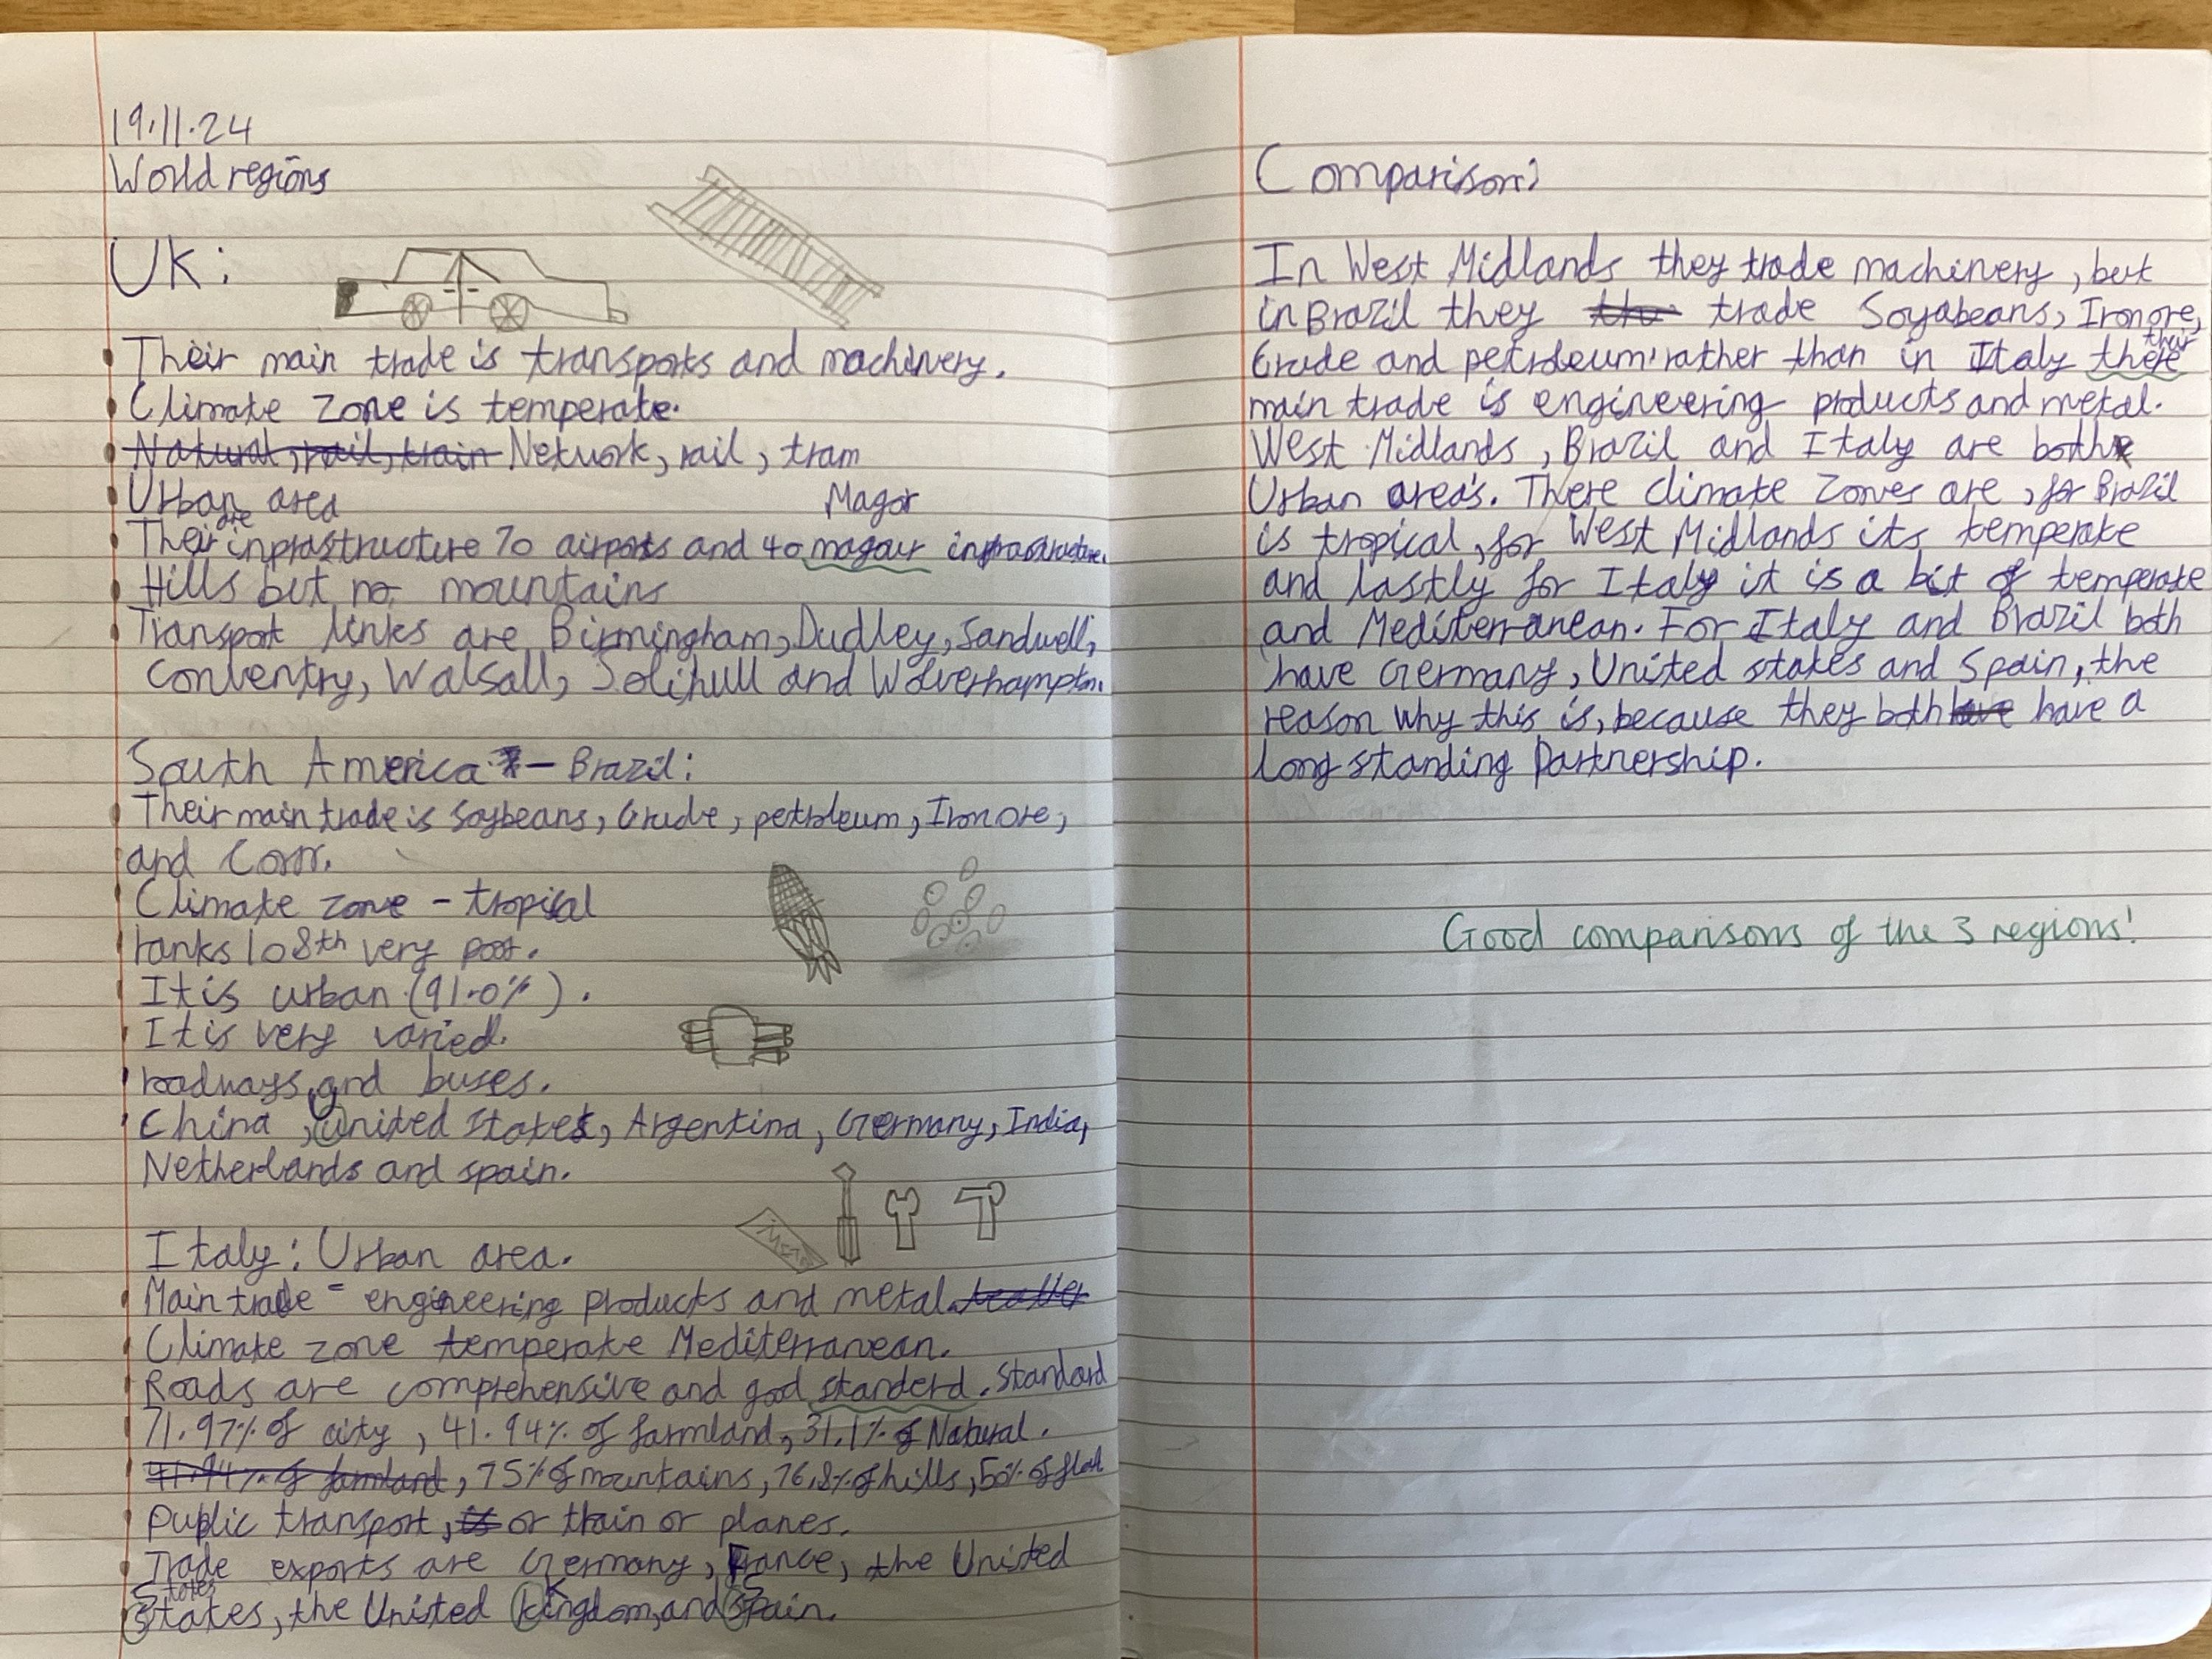 19.11.24
World regions
UK:
Their main trade is transports and machinery.
Climate zone is temperate.
Natural, rail, train Network, rail, tram
Urban area
Magor
are
Their inprastructure 70 airports and 40 magaur infrastructure.
Hills but no mountains
Transport links are Birmingham, Dudley, Sandwell,
Conventry, Walsall, Solihull and Wolverhampton.
South America - Brazil:
Their main trade is Soybeans, Crude, petroleum, Iron ore,
and Corn.
Climate zone - tropical
ranks 108th very poor.
It is urban (91.0%).
It is very varied.
roadways and buses.
China, United States, Argentina, Germany, India,
Netherlands and spain.
Metal
Italy: Urban area.
Main trade - engineering products and metal. leather
Climate zone temperate Mediterranean.
Roads are comprehensive and good standerd. Standard
71.97% of city, 41.94% of farmland, 31.1% of Natural.
41.94% of farmland, 75% of mountains, 76.8% of hills, 50% of flat
Public transport, is or train or planes.
Trade exports are Germany, France, the United
States
States, the United Kingdom, and Spain.
Comparison:
In West Midlands they trade machinery, but
in Brazil they trade Soyabeans, Iron ore,
their
Crude and petroleum, rather than in Italy there
main trade is engineering products and metal.
West Midlands, Brazil and Italy are both
Urban area's. There climate zones are, for Brazil
is tropical, for West Midlands its temperate
and lastly for Italy it is a bit of temperate
and Mediterranean. For Italy and Brazil both
have Germany, United states and Spain, the
reason why this is, because they both have have a
long standing Partnership.
Good comparisons of the 3 regions!